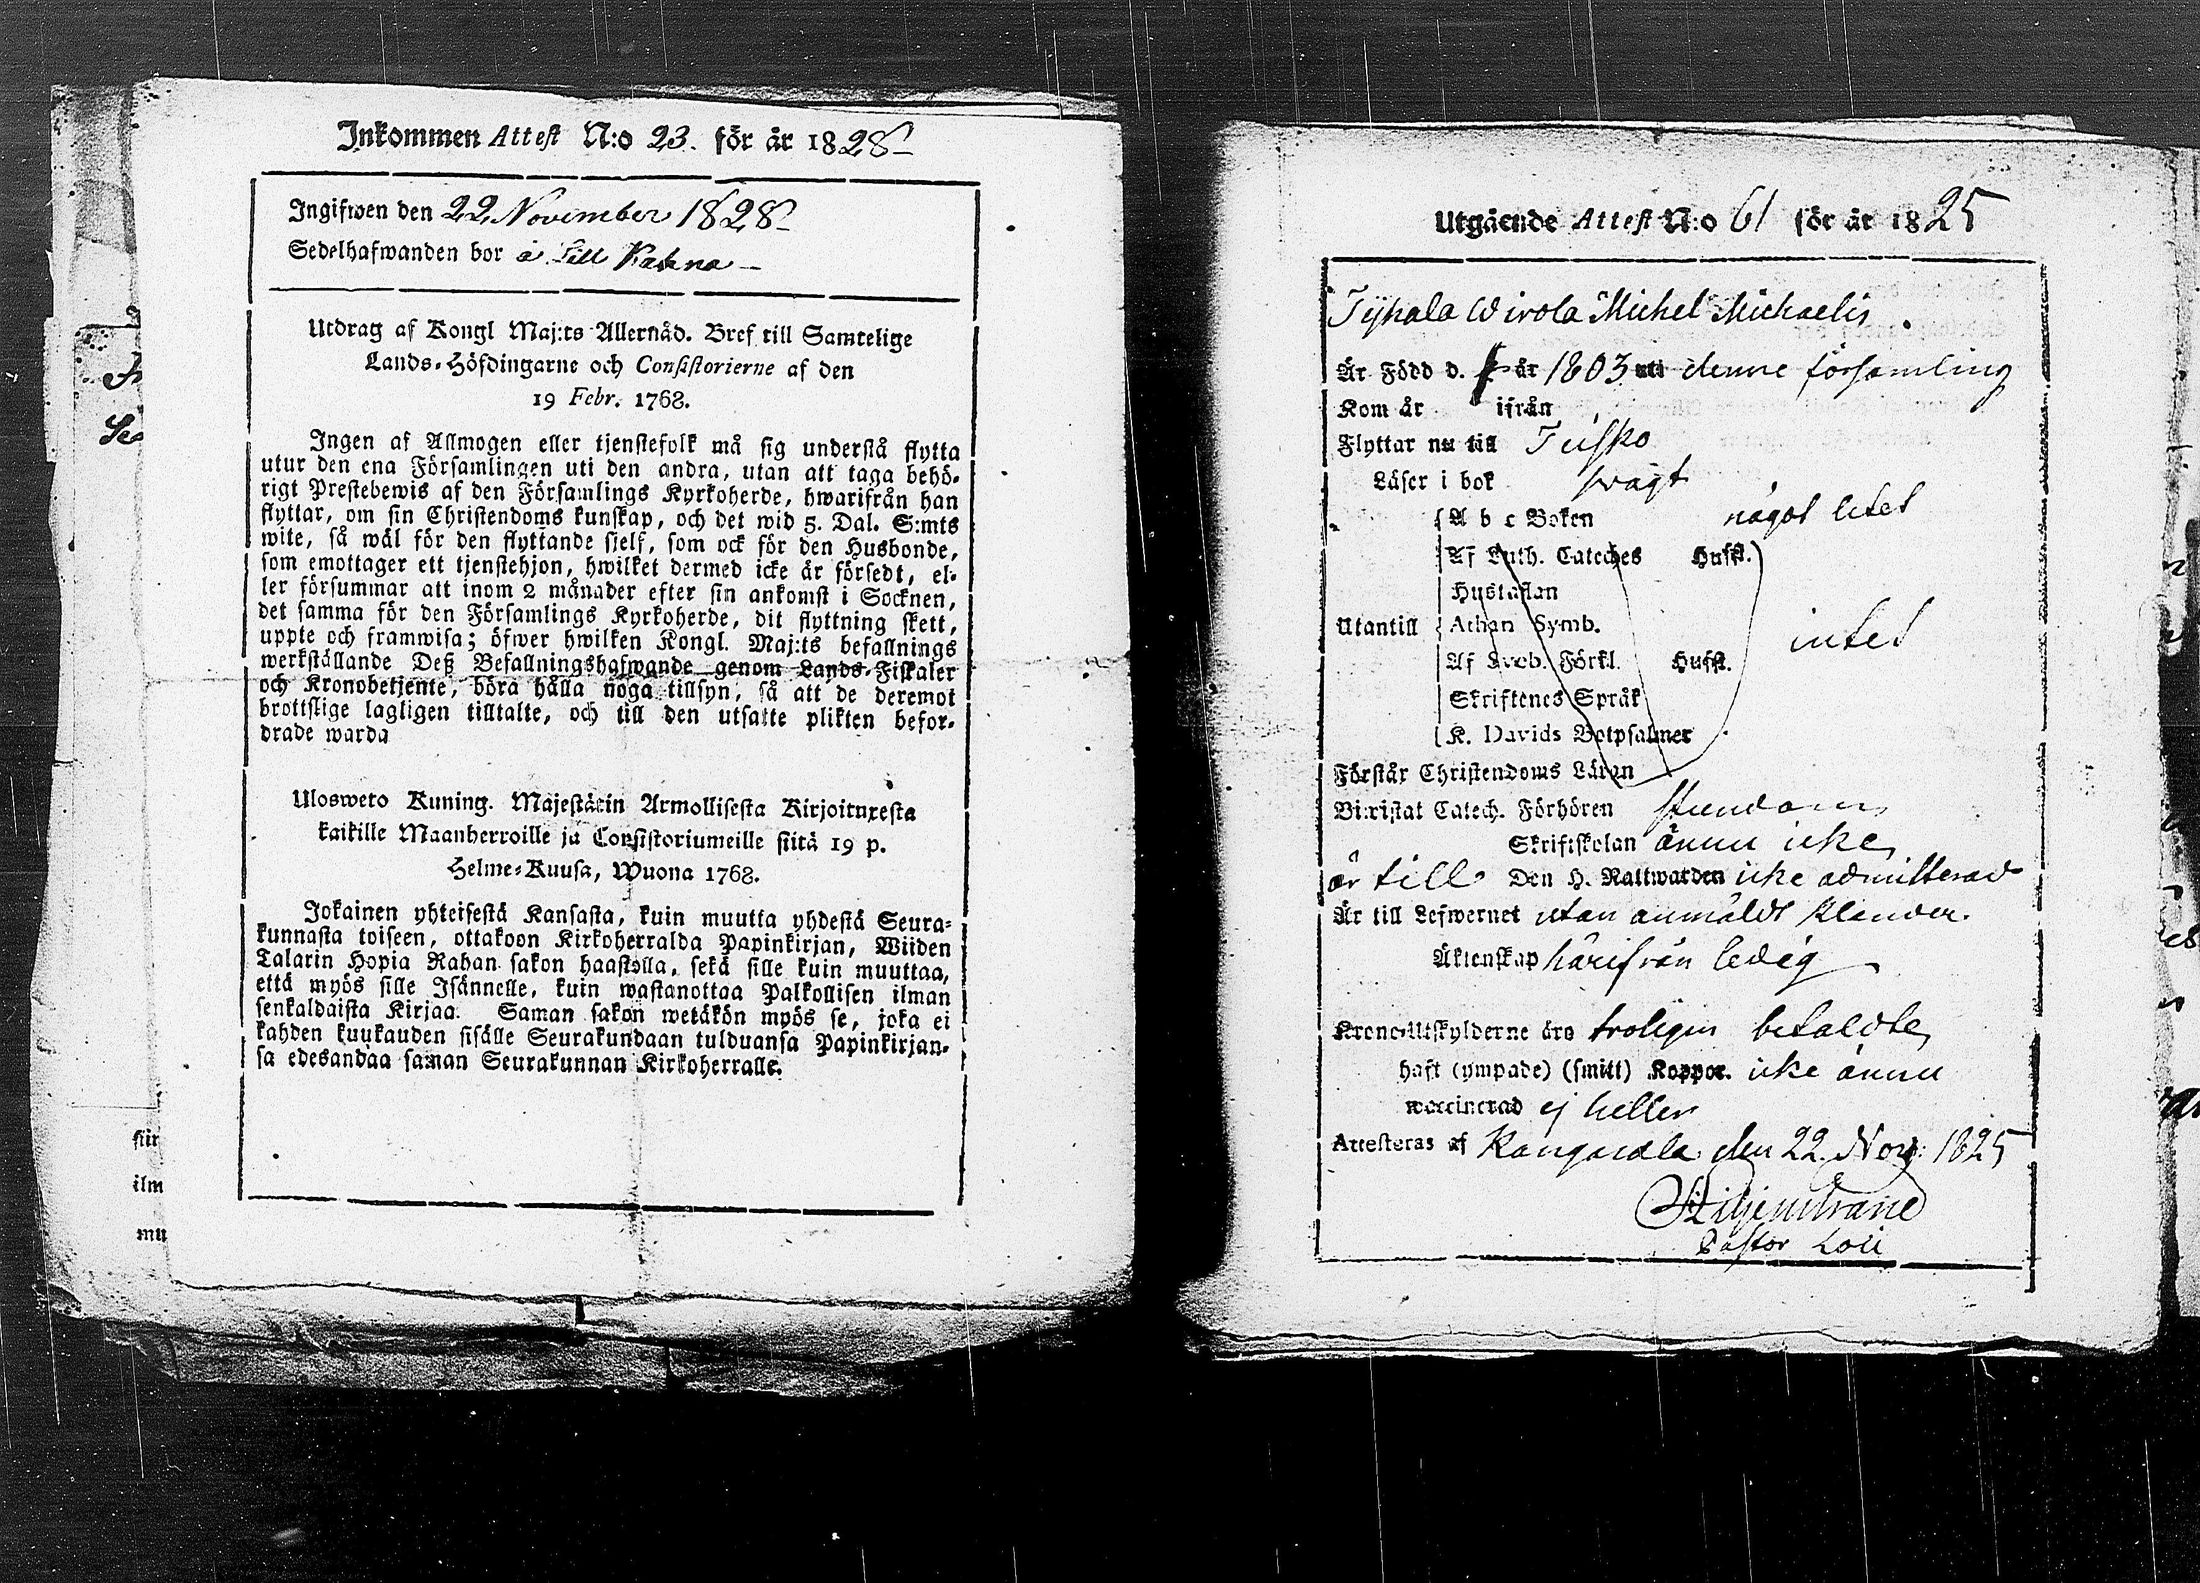 Inkommen Attest N:o 23. för år 1828
Ingifwen den 22 November 1828
Sedelhafwanden bor å Lill
Utdrag af Kongl Maj:ts Allernåd. Bref till Samtelige
Lands-Höfdingarne och Consistorierne af den
19 Febr. 1768.
Ingen af Allmogen eller tjenstefolk må sig understå flytta
utur den ena Församlingen uti den andra, utan att taga behö-
rigt Prestebewis af den Församlings Kyrkoherde, hwarifrån han
flyttar, om sin Christendoms kunskap, och det wid 5. Dal. S:mts
wite, så wäl för den flyttande sjelf, som ock för den Husbonde,
som emottager ett tjenstehjon, hwilket dermed icke är försedt, el-
ler försummar att inom 2 månader efter sin ankomst i Socknen,
det samma för den Församlings Kyrkoherde, dit flyttning skett,
uppte och framwisa; öfwer hwilken Kongl. Maj:ts befallnings
werkställande Deß Befallningshafwande genom Lands-Fiskaler
och Kronobetjente, böra hålla noga tillsyn, så att de deremot
brottslige lagligen tilltalte, och till den utsatte plikten befor-
drade warda
Ulosweto Kuning. Majestätin Armollisesta Kirjoituxesta
kaikille Maanherroille ja Consistoriumeille siitä 19 p.
Helme-Kuusa, Wuona 1768.
Jokainen yhteisestä Kansasta, kuin muutta yhdestä Seura-
kunnasta toiseen, ottakoon Kirkoherralda Papinkirjan, Wiiden
Talarin Hopia Rahan sakon haastolla, sekä sille kuin muuttaa,
että myös sille Isännelle, kuin wastanottaa Palkollisen ilman
senkaldaista Kirjaa. Saman sakon wetäkön myös se, joka ei
kahden kuukauden sisälle Seurakundaan tulduansa Papinkirjan-
sa edesandaa saman Seurakunnan Kirkoherralle.
siir
ilm
mu
Utgående Attest N:o 61 för år 1825
Tyhala Wirola Michel Michaelis
Är Född d. år 1803 uti denne församling
Kom år ifrån
Flyttar nu till
Läser i bok swagt
A b c Boken något litet
Af Luth. Cateches Husfl.
Hustaflan
Utantill Athan Symb. intet
Af Sweb. Förkl. Husfl.
Skriftenes Språk
K. Davids Botpsalmer
Förstår Christendoms Läran
Biwistat Catech. Förhören stundom
Skriftskolan ännu icke
är till Den H. Nattwarden icke admitterad
Är till Lefwernet utan anmäldt klander.
Äktenskap härifrån ledig
Krono-Utskylderne äro troligen betaldte
haft (ympade) (smitt) Koppor. icke ännu
waccinerad ej heller
Attesteras af Kangasala den 22 Nov: 1825
Liljenstrand
Pastor Loci